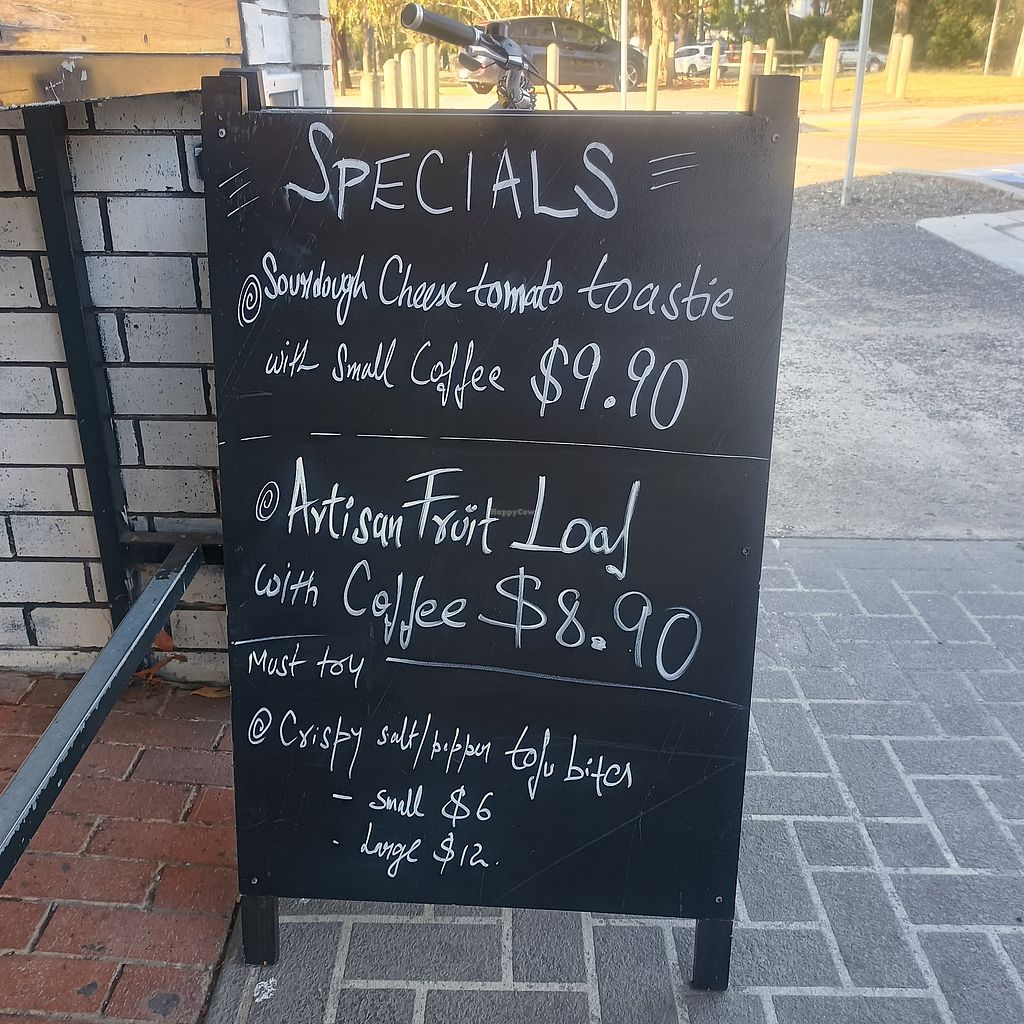 SPECIALS
@ Sourdough Cheese tomato toastie
with Small Coffee $9.90
@ Artisan Fruit Loaf
with Coffee $8.90
Must toy
@ Crispy salt/pepper tofu bites
- small $6
- Large $12.
HappyCow